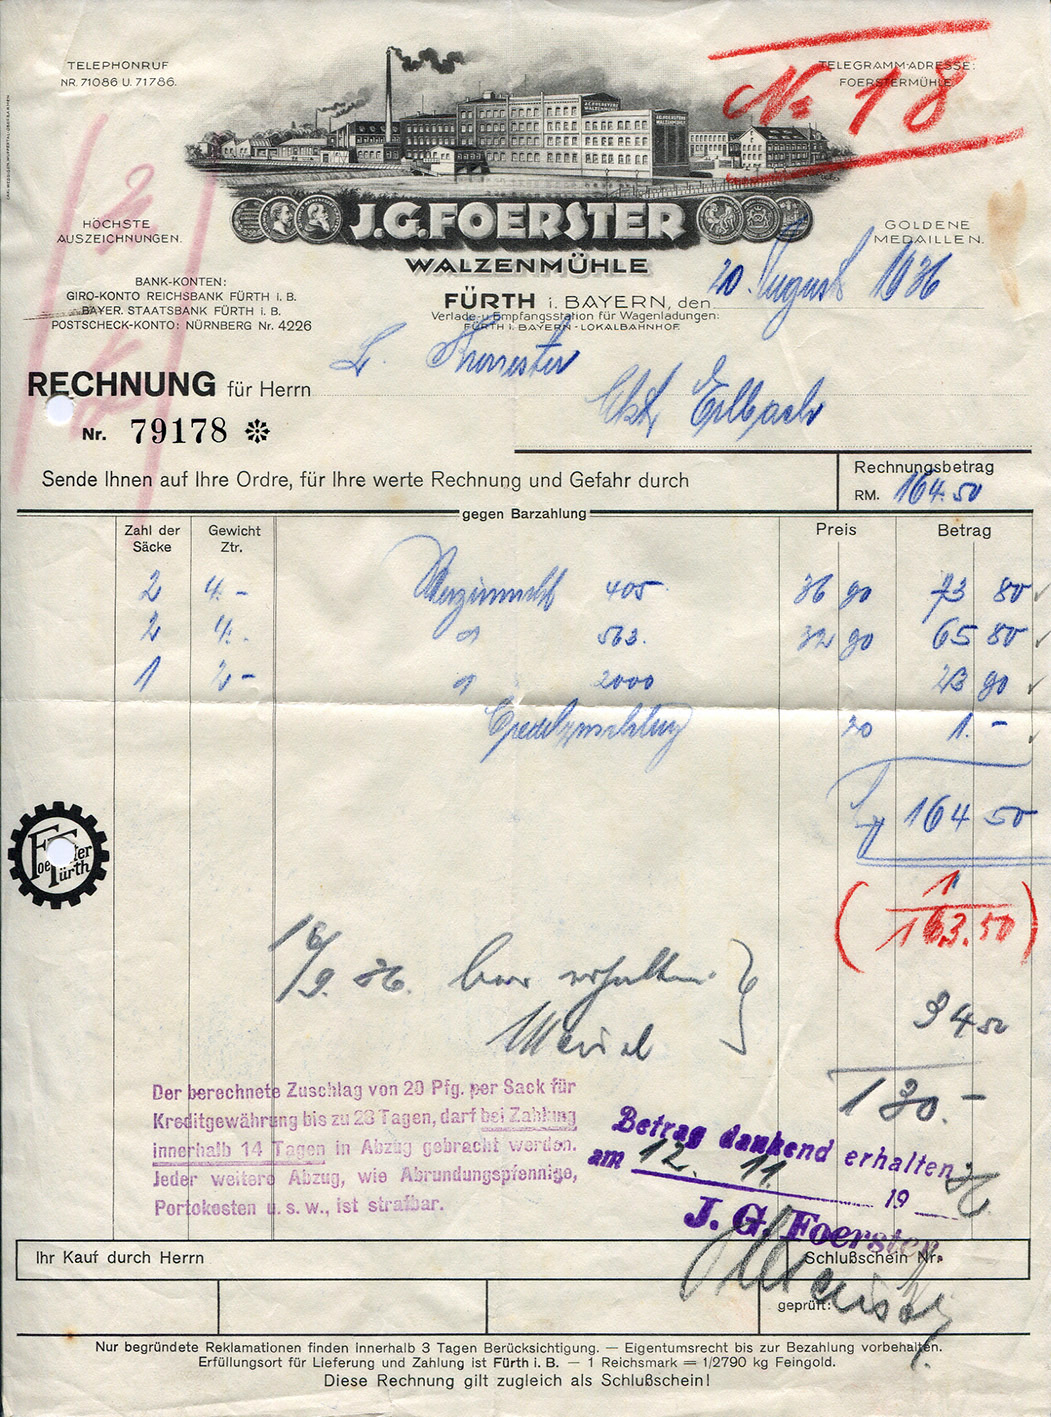 TELEPHONRUF
NR. 71086 U. 71786.
TELEGRAMM-ADRESSE:
FOERSTERMÜHLE
No 18
J.G. FOERSTERS
WALZENMÜHLE
J.G. FOERSTER
WALZENMÜHLE
HÖCHSTE
AUSZEICHNUNGEN.
GOLDENE
MEDAILLEN.
J.G. FOERSTER
WALZENMÜHLE
BANK-KONTEN:
GIRO-KONTO REICHSBANK FÜRTH i. B.
BAYER. STAATSBANK FÜRTH i. B.
POSTSCHECK-KONTO: NÜRNBERG Nr. 4226
FÜRTH i. BAYERN, den 20. August 1936
Verlade- u. Empfangsstation für Wagenladungen:
FÜRTH i. BAYERN - LOKALBAHNHOF.
RECHNUNG für Herrn
Erlbach
Nr. 79178
Sende Ihnen auf Ihre Ordre, für Ihre werte Rechnung und Gefahr durch
Rechnungsbetrag
RM. 164.50
gegen Barzahlung
Zahl der Säcke Gewicht Ztr. Preis Betrag
2 4.- 405 36 90 73 80
2 4.- " 563. 32 90 65 80
1 2.- " 2000 23 90
20 1.-
164 50
1
(163.50)
Foerster
Fürth
16/9. 36. bar erhalten
34 50
130.-
Der berechnete Zuschlag von 20 Pfg. per Sack für
Kreditgewährung bis zu 28 Tagen, darf bei Zahlung
innerhalb 14 Tagen in Abzug gebracht werden.
Jeder weitere Abzug, wie Abrundungspfennige,
Portokosten u. s. w., ist strafbar.
Betrag dankend erhalten
am 12. 11. 19 36
J. G. Foerster
Ihr Kauf durch Herrn
Schlußschein Nr.
geprüft:
Nur begründete Reklamationen finden innerhalb 3 Tagen Berücksichtigung. — Eigentumsrecht bis zur Bezahlung vorbehalten.
Erfüllungsort für Lieferung und Zahlung ist Fürth i. B. — 1 Reichsmark = 1/2790 kg Feingold.
Diese Rechnung gilt zugleich als Schlußschein!